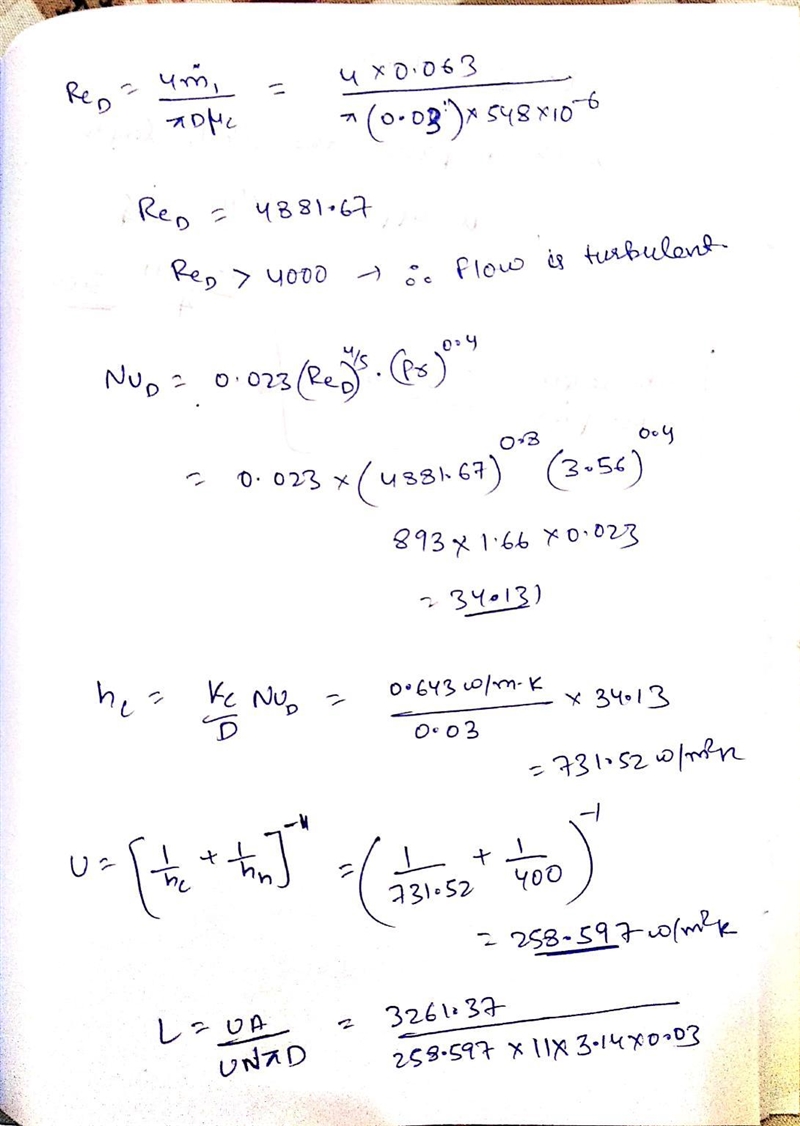 Re_D = 4ṁ₁ / πDμ_c = 4 × 0.063 / π(0.03) × 548 × 10⁻⁶
Re_D = 4881.67
Re_D > 4000 → ∴ Flow is turbulent.
Nu_D = 0.023 (Re_D)^4/5 · (Pr)^0.4
= 0.023 × (4881.67)^0.8 (3.56)^0.4
893 × 1.66 × 0.023
= 34.131
h_c = K_c/D Nu_D = 0.643 w/m-k / 0.03 × 34.13
= 731.52 w/m²k
U = [1/h_c + 1/h_h]⁻¹ = (1/731.52 + 1/400)⁻¹
= 258.597 w/m²k
L = UA / UNπD = 3261.37 / 258.597 × 11 × 3.14 × 0.03